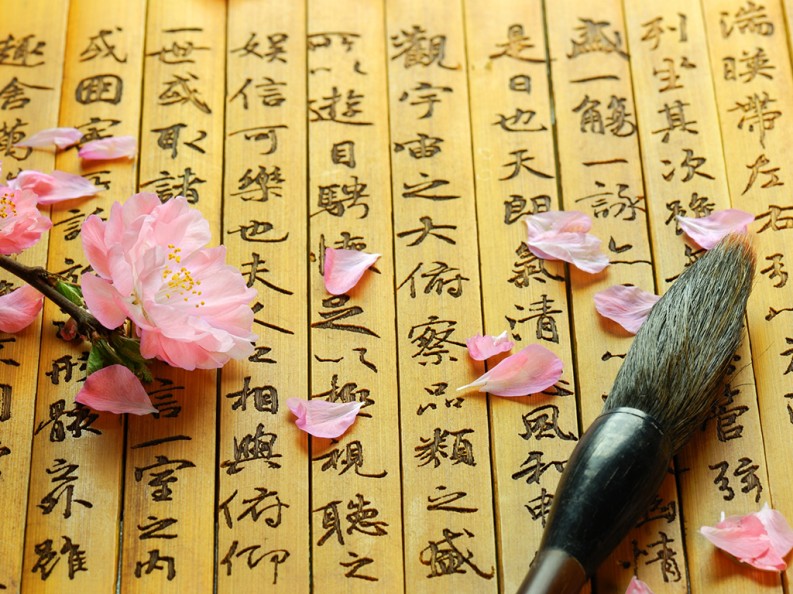 湍暎帶左右引以
列坐其次雖管弦
盛一觴一詠亦幽情
是日也天朗氣清風和暢
觀宇宙之大俯察品類之盛
所以遊目騁懷足以極視聽之
娛信可樂也夫人之相與俯仰
一世或取諸言一室之內
或因寄形骸之外雖
趣舍萬